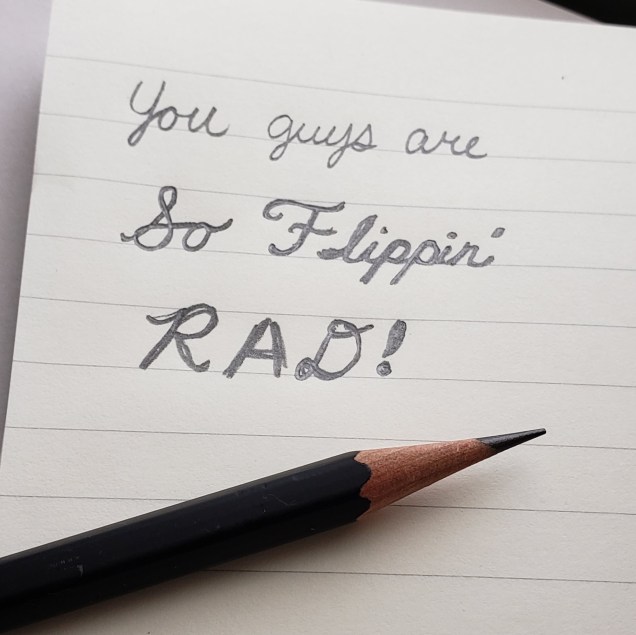 You guys are
So Flippin'
RAD!